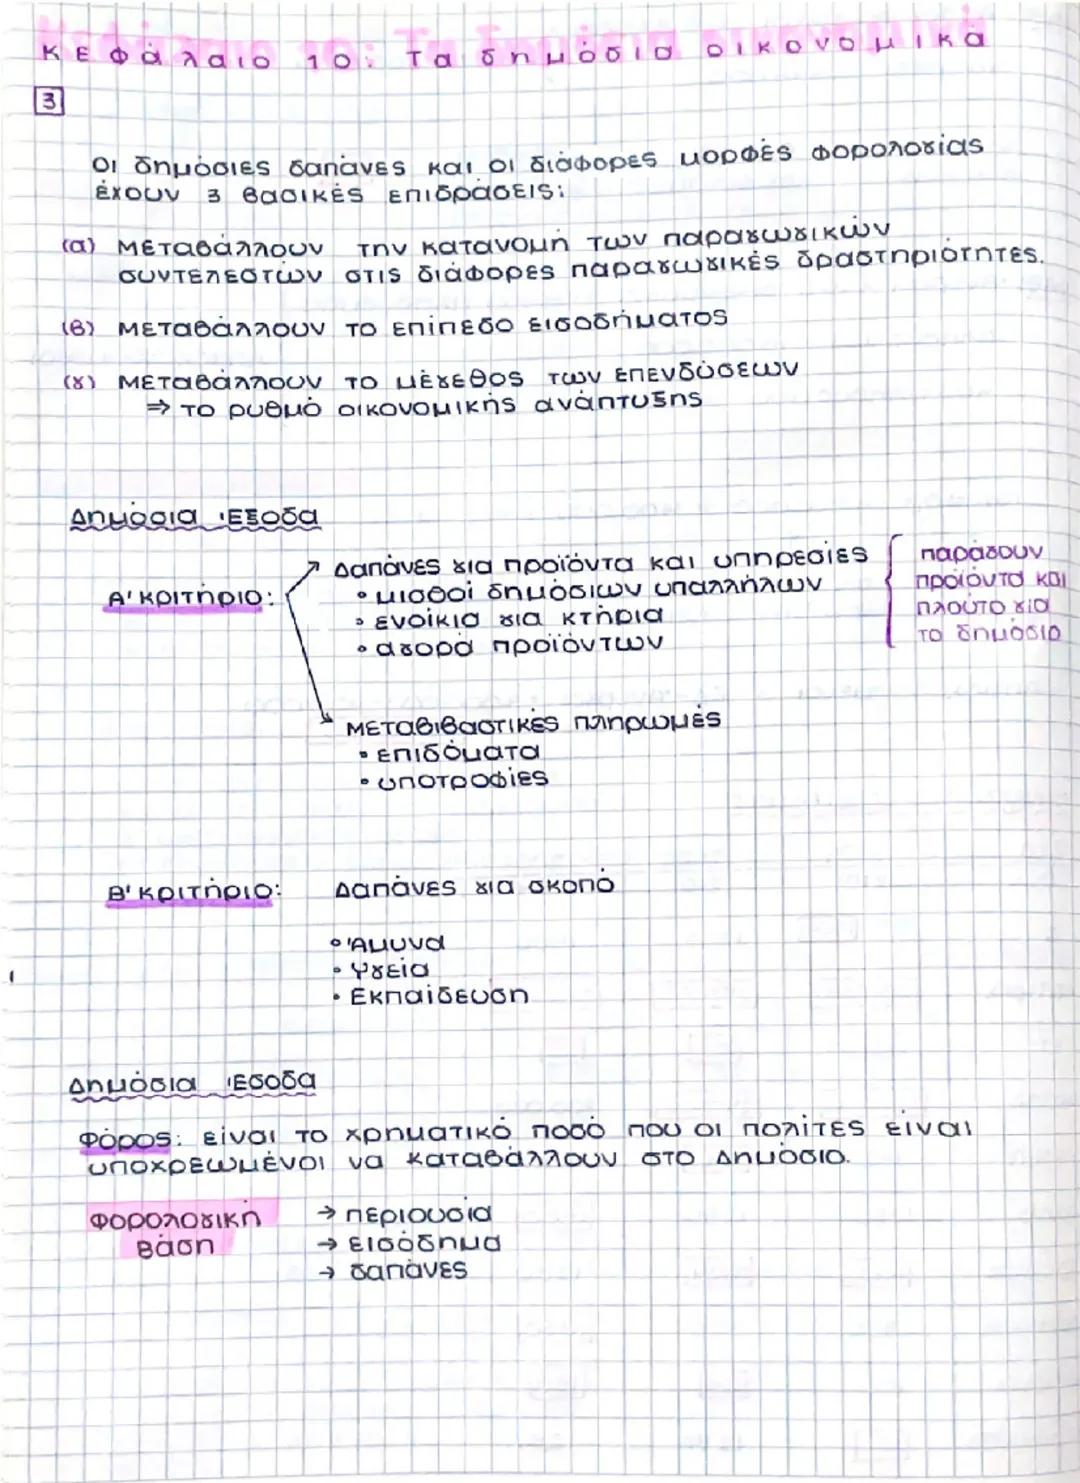 Κεφάλαιο 10: Τα δημόσια οικονομικά
3
Οι δημόσιες δαπάνες και οι διάφορες μορφές φορολογίας
έχουν 3 βασικές επιδράσεις:
(α) Μεταβάλλουν την κατανομή των παραγωγικών
συντελεστών στις διάφορες παραγωγικές δραστηριότητες.
(β) Μεταβάλλουν το επίπεδο εισοδήματος
(γ) Μεταβάλλουν το μέγεθος των επενδύσεων
⇒ το ρυθμό οικονομικής ανάπτυξης
Δημόσια Έξοδα
Α' Κριτήριο:
Δαπάνες για προϊόντα και υπηρεσίες
• μισθοί δημόσιων υπαλλήλων
• ενοίκια για κτήρια
• αγορά προϊόντων
παράγουν
προϊόντα και
πλούτο για
το δημόσιο
Μεταβιβαστικές πληρωμές
• επιδόματα
• υποτροφίες
Β' Κριτήριο: Δαπάνες για σκοπό
• Άμυνα
• Υγεία
• Εκπαίδευση
Δημόσια Έσοδα
Φόρος: είναι το χρηματικό ποσό που οι πολίτες είναι
υποχρεωμένοι να καταβάλλουν στο Δημόσιο.
Φορολογική
Βάση
→ περιουσία
→ εισόδημα
→ δαπάνες